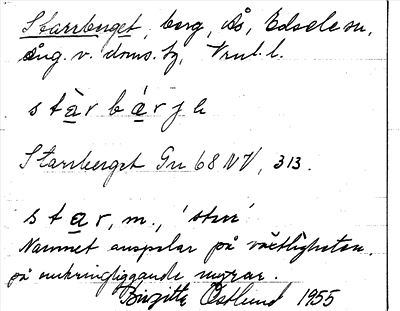 Starrberget, berg, Då, Edsele sn,
Ång. v. doms. tg, Vrnl. l.
stàrbárje
Starrberget Gn 68 NV, 313.
star, m., 'starr'
Namnet anspelar på växtligheten
på omkringliggande myrar.
Birgitta Östlund 1955